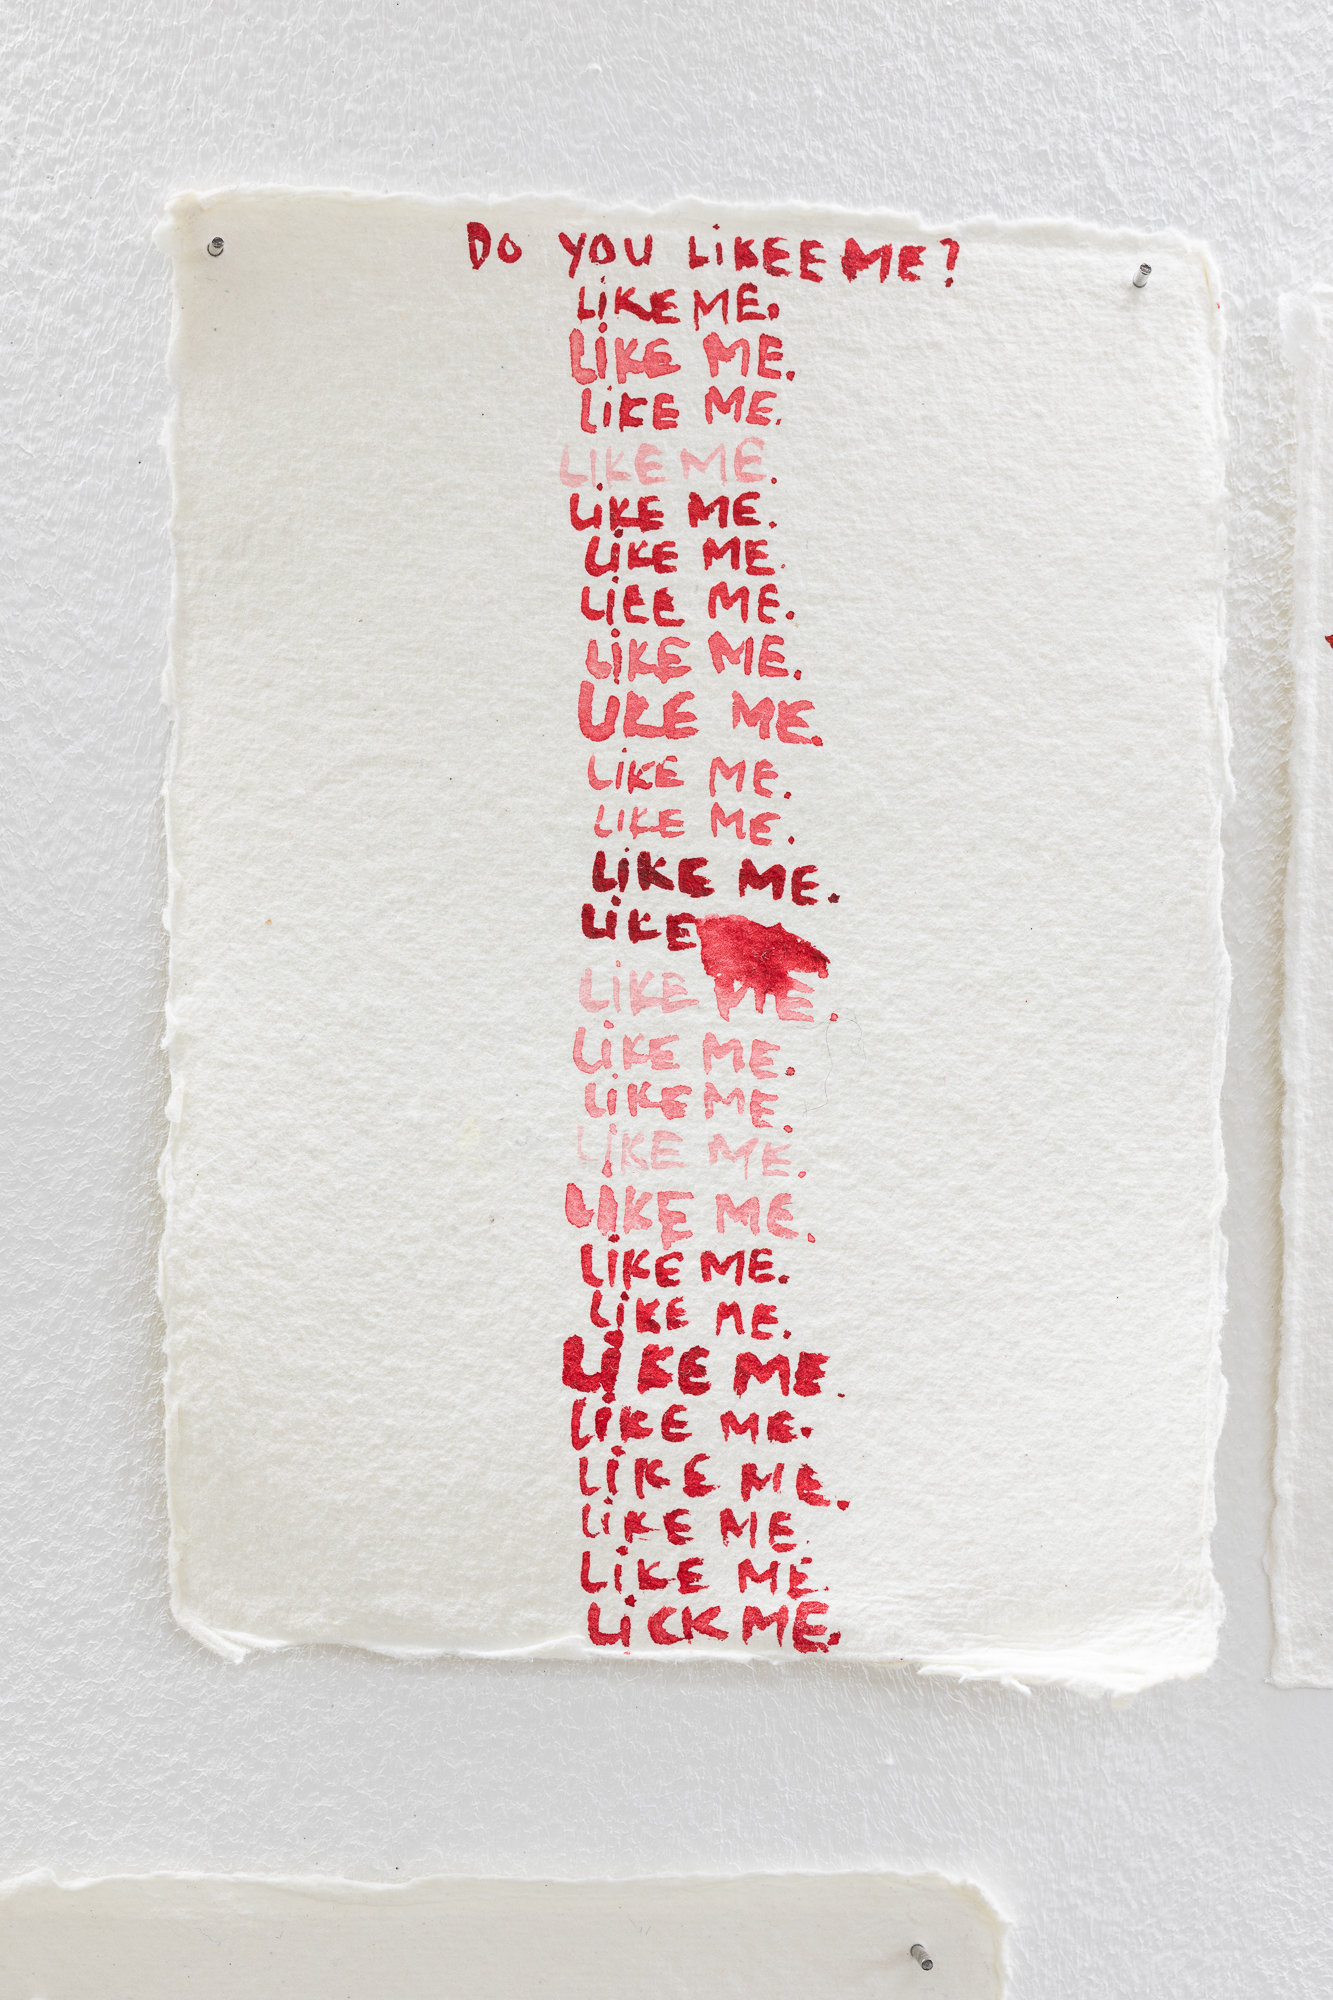 Do YOU LiKEE ME?
LiKE ME.
LiKE ME.
LiKE ME.
LiKE ME.
LiKE ME.
LiKE ME.
LiKE ME.
LiKE ME.
LiKE ME.
LiKE ME.
LiKE ME.
LiKE ME.
LiKE
LiKE ME.
LiKE ME.
LiKE ME.
LiKE ME.
LiKE ME.
LiKE ME.
LiKE ME.
LiKE ME.
LiKE ME.
LiKE ME.
LiKE ME.
LiKE ME.
LiCK ME.